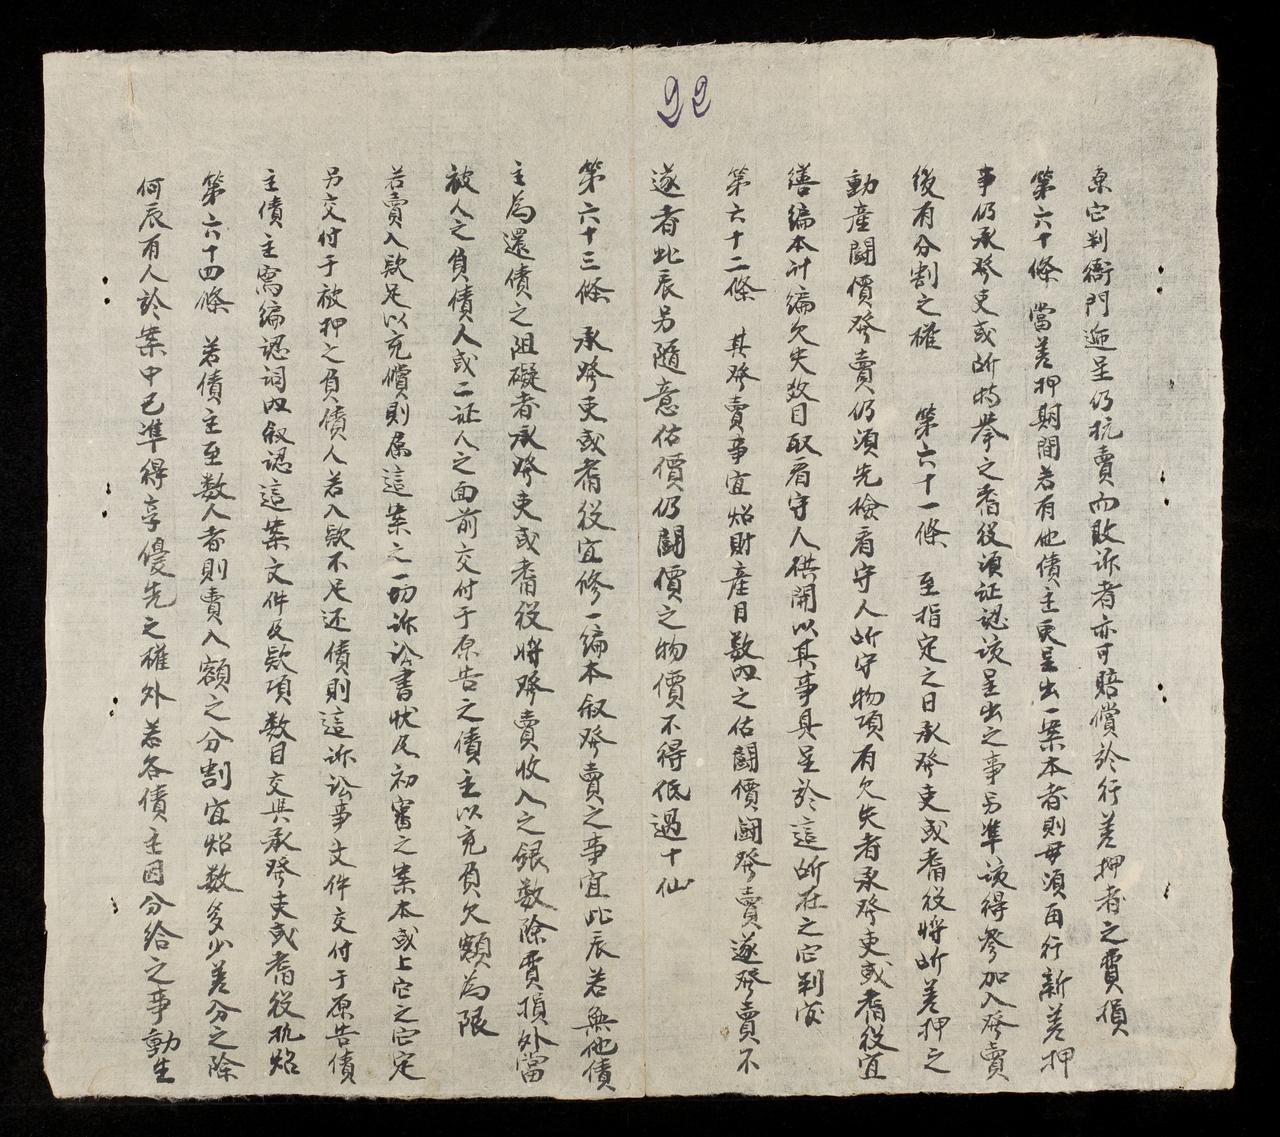 22
稟它判衙門迎呈仍抗賣而敗訴者亦可賠償於行差押者之費損
第六十條 當差押期間若有他債主更呈出一案本者則毋須再行新差押
事仍承發吏或所特舉之耆役須証認该呈出之事另準该得參加入發賣
後有分割之權 第六十一條 至指定之日承發吏或耆役將所差押之
動產鬪價發賣仍須先檢看守人所守物項有欠失者承發吏或耆役宜
繕編本計編欠失数目取看守人供開以其事具呈於這所在之它判官
第六十二條 其發賣事宜炤財產目数內之估鬪價鬪發賣遂發賣不
遂者此辰另隨意估價仍鬪價之物價不得低過十仙
第六十三條 承發吏或耆役宜修一編本叙發賣之事宜此辰若無他債
主為還債之阻礙者承發吏或耆役將發賣收入之銀数除費損外當
被人之負債人或二证人之面前交付于原告之債主以充負欠額為限
若賣入欵足以充償則屬這案之一切訴訟書狀及初審之案本或上它之它定
另交付于被押之負債人若入欵不足还債則這訴訟事文件交付于原告債
主債主寫編認詞內叙認這案文件及欵項数目交與承發吏或耆役执炤
第六十四條 若債主至数人者則賣入額之分割宜炤数多少差分之除
何辰有人於案中已準得享優先之權外若各債主因分給之事動生